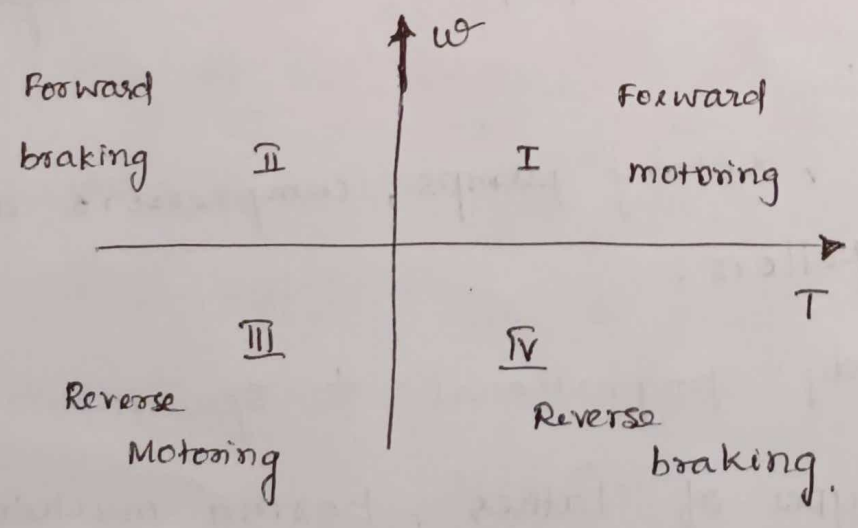 ω
Forward
braking
II
Forward
motoring
I
T
III
Reverse
Motoring
IV
Reverse
braking.